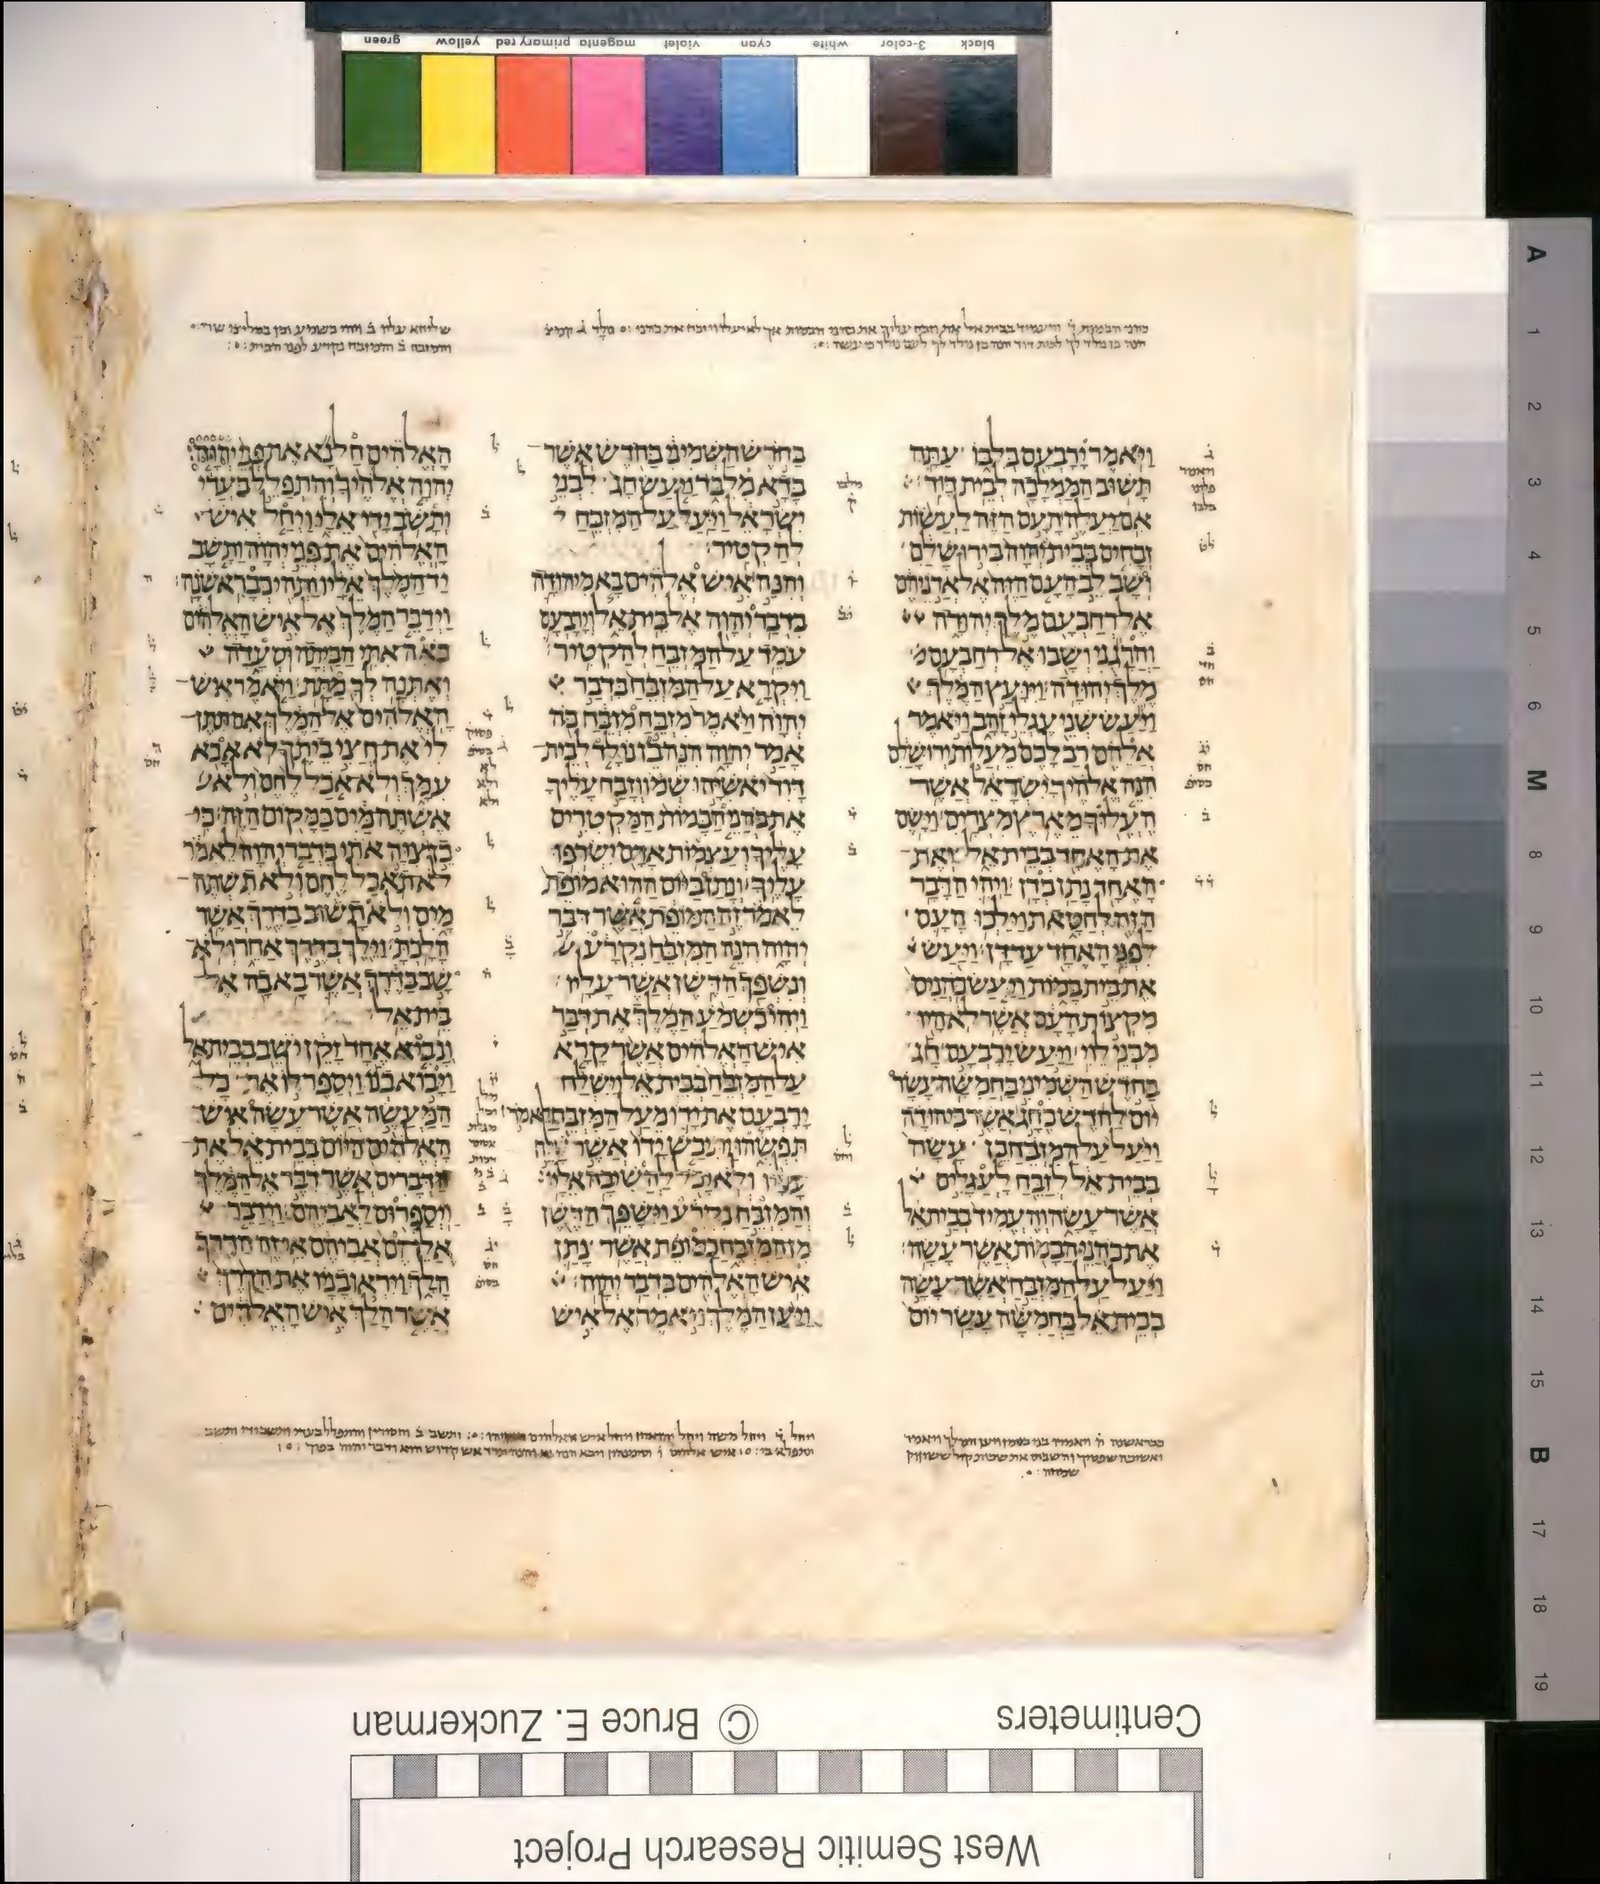 green yellow primary red magenta violet cyan white 3-color black
ויאמר ירבעם בלבו עתה
תשוב הממלכה לבית דוד׃
אם יעלה העם הזה לעשות
זבחים בבית יהוה בירושלם
ושב לב העם הזה אל אדניהם
אל רחבעם מלך יהודה
והרגני ושבו אל רחבעם
מלך יהודה׃ ויועץ המלך
ויעש שני עגלי זהב ויאמר
אלהם רב לכם מעלות ירושלם
הנה אלהיך ישראל אשר
העלוך מארץ מצרים׃ וישם
את האחד בבית אל ואת
האחד נתן בדן׃ ויהי הדבר
הזה לחטאת וילכו העם
לפני האחד עד דן׃ ויעש
את בית במות ויעש כהנים
מקצות העם אשר לא היו
מבני לוי׃ ויעש ירבעם חג
בחדש השמיני בחמשה עשר
יום לחדש כחג אשר ביהודה
ויעל על המזבח כן עשה
בבית אל לזבח לעגלים
אשר עשה והעמיד בבית אל
את כהני הבמות אשר עשה׃
ויעל על המזבח אשר עשה
בבית אל בחמשה עשר יום
בחדש השמיני בחדש אשר
בדא מלבד ויעש חג לבני
ישראל ויעל על המזבח
להקטיר׃
והנה איש אלהים בא מיהודה
בדבר יהוה אל בית אל וירבעם
עמד על המזבח להקטיר׃
ויקרא על המזבח בדבר
יהוה ויאמר מזבח מזבח כה
אמר יהוה הנה בן נולד לבית
דוד יאשיהו שמו וזבח עליך
את כהני הבמות המקטרים
עליך ועצמות אדם ישרפו
עליך׃ ונתן ביום ההוא מופת
לאמר זה המופת אשר דבר
יהוה הנה המזבח נקרע
ונשפך הדשן אשר עליו׃
ויהי כשמע המלך את דבר
איש האלהים אשר קרא
על המזבח בבית אל וישלח
ירבעם את ידו מעל המזבח לאמר
תפשהו ותיבש ידו אשר שלח
עליו ולא יכל להשיבה אליו׃
והמזבח נקרע וישפך הדשן
מן המזבח כמופת אשר נתן
איש האלהים בדבר יהוה׃
ויען המלך ויאמר אל איש
האלהים חל נא את פני יהוה
יהוה אלהיך והתפלל בעדי
ותשב ידי אלי ויחל איש
האלהים את פני יהוה ותשב
יד המלך אליו ותהי כבראשנה׃
וידבר המלך אל איש האלהים
באה אתי הביתה וסעדה
ואתנה לך מתת׃ ויאמר איש
האלהים אל המלך אם תתן
לי את חצי ביתך לא אבא
עמך ולא אכל לחם ולא
אשתה מים במקום הזה׃ כי
כן צוה אתי בדבר יהוה לאמר
לא תאכל לחם ולא תשתה
מים ולא תשוב בדרך אשר
הלכת׃ וילך בדרך אחר ולא
שב בדרך אשר בא בה אל
בית אל׃
ונביא אחד זקן ישב בבית אל
ויבוא בנו ויספר לו את כל
המעשה אשר עשה איש
האלהים היום בבית אל את
הדברים אשר דבר אל המלך
ויספרום לאביהם׃ וידבר
אלהם אביהם אי זה הדרך
הלך ויראו בניו את הדרך
אשר הלך איש האלהים
A 1 2 3 4 5 6 M 8 9 10 11 12 13 14 15 B 17 18 19
Centimeters
© Bruce E. Zuckerman
West Semitic Research Project